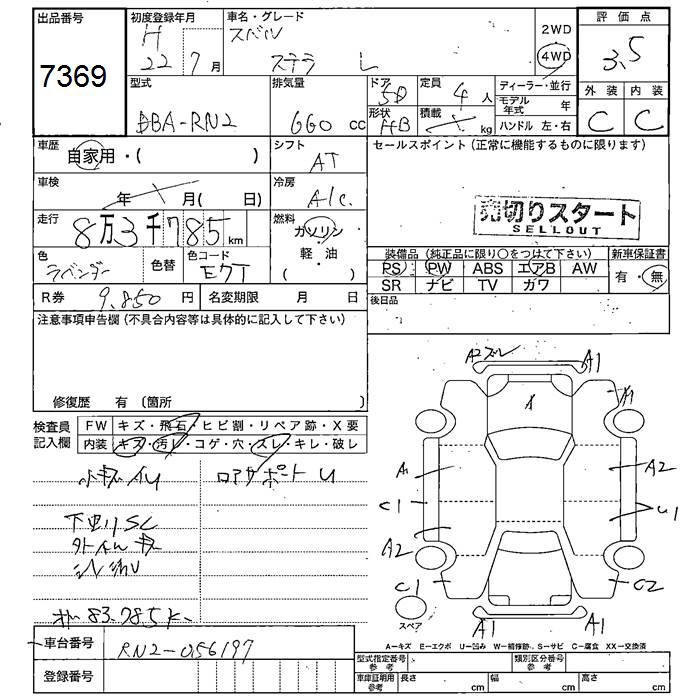 出品番号
7369
初度登録年月
H
22 7 月
車名・グレード
スバル
ステラ L
2WD
4WD
評価点
3.5
型式
DBA-RN2
排気量
660 cc
ドア
5D
形状
HB
定員
4 人
積載
kg
ディーラー・並行
モデル年式 年
ハンドル 左・右
外装 内装
C C
車歴
自家用・( )
シフト
AT
車検
年 月( 日)
冷房
A/C
走行
8万3千785 km
燃料
ガソリン
・
軽・油
( )
色
ラベンダー
色替
色コード
E7T
R券
9,850 円
名変期限 月 日
セールスポイント(正常に機能するものに限ります)
売切りスタート
SELLOUT
装備品(純正品に限り○をつけて下さい)
PS PW ABS エアB AW
SR ナビ TV ガワ
新車保証書
有・無
後日品
注意事項申告欄(不具合内容等は具体的に記入して下さい)
修復歴 有(箇所 )
検査員
記入欄
FW キズ・飛石・ヒビ割・リペア跡・X要
内装 キズ・汚レ・コゲ・穴・スレ・キレ・破レ
ロアサポート U
下廻りSC
83,785K
車台番号
RN2-056197
登録番号
A2 A1
A1
A
A1 A2
C1 U1
A2
C1 C2
A1 A1
スペア
A−キズ E−エクボ U−凹み W−補修跡 S−サビ C−腐食 XX−交換済
型式指定番号
参考
類別区分番号
参考
車庫証明用
参考
長さ cm 幅 cm 高さ cm